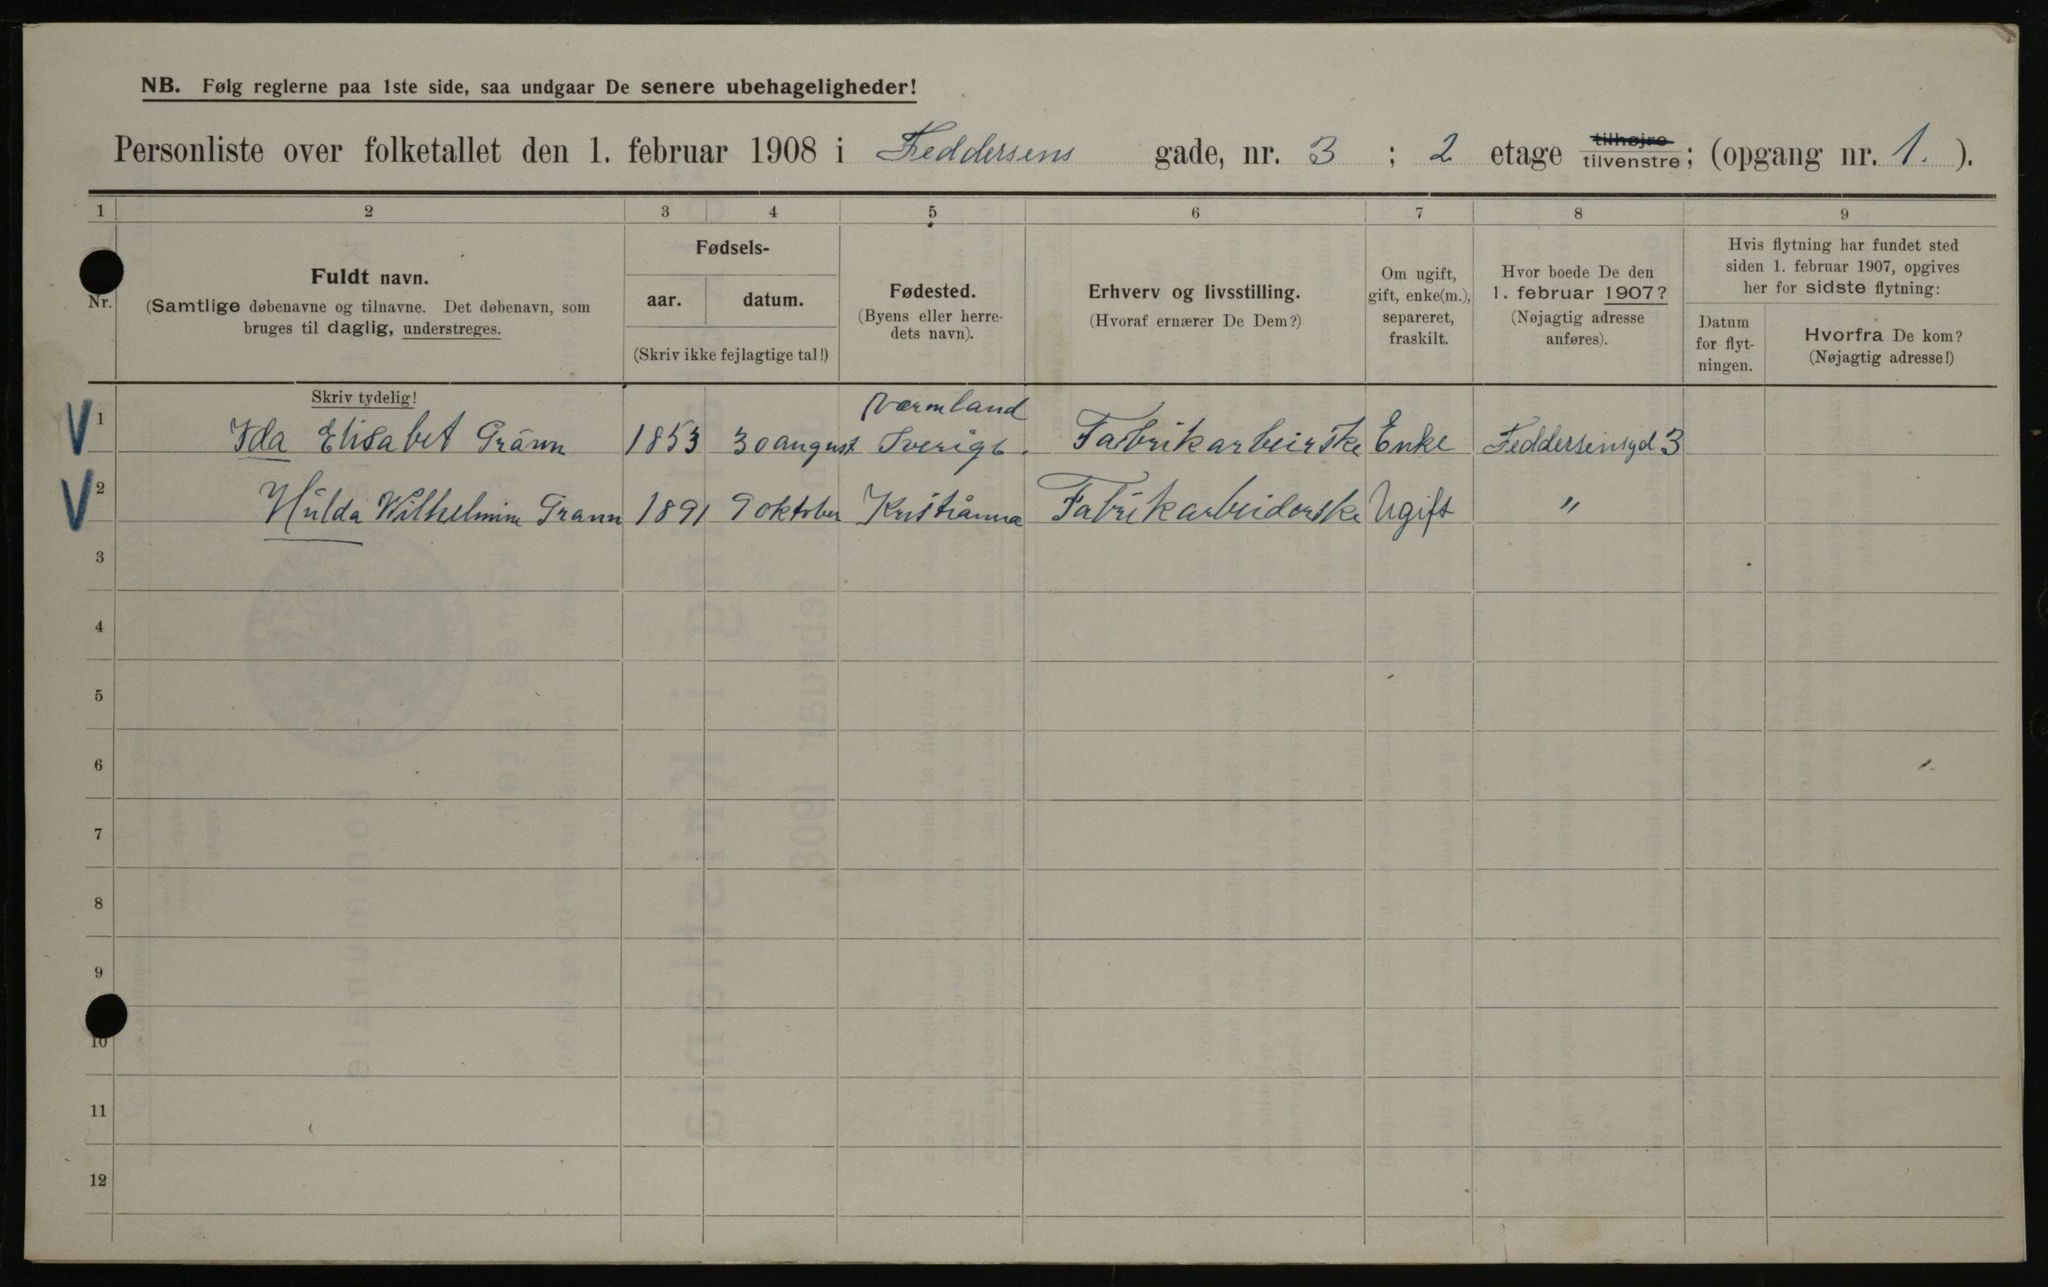 NB. Følg reglerne paa 1ste side, saa undgaar De senere ubehageligheder!
Personliste over folketallet den 1. februar 1908 i Feddersens gade, nr. 3 ; 2 etage tilhøjre tilvenstre; (opgang nr. 1. ).
1 2 3 4 5 6 7 8 9
Nr.
Fuldt navn.
(Samtlige døbenavne og tilnavne. Det døbenavn, som
bruges til daglig, understreges.
Fødsels-
aar. datum.
(Skriv ikke fejlagtige tal!)
Fødested.
(Byens eller herre-
dets navn).
Erhverv og livsstilling.
(Hvoraf ernærer De Dem?)
Om ugift,
gift, enke(m.),
separeret,
fraskilt.
Hvor boede De den
1. februar 1907?
(Nøjagtig adresse
anføres).
Hvis flytning har fundet sted
siden 1. februar 1907, opgives
her for sidste flytning:
Datum
for flyt-
ningen.
Hvorfra De kom?
(Nøjagtig adresse!)
Skriv tydelig!
Værmland
V 1 Ida Elisabet Gränn 1853 30 august Sverige. Fabrikarbeirske Enke Feddersensgd 3
V 2 Hulda Wilhelmine Grann 1891 9 oktober Kristianna Fabrikarbeiderske Ugift "
3
4
5
6
7
8
9
10
11
12